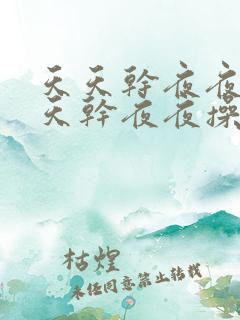 天天幹夜夜
天幹夜夜操
枯煌
未经同意禁止转载